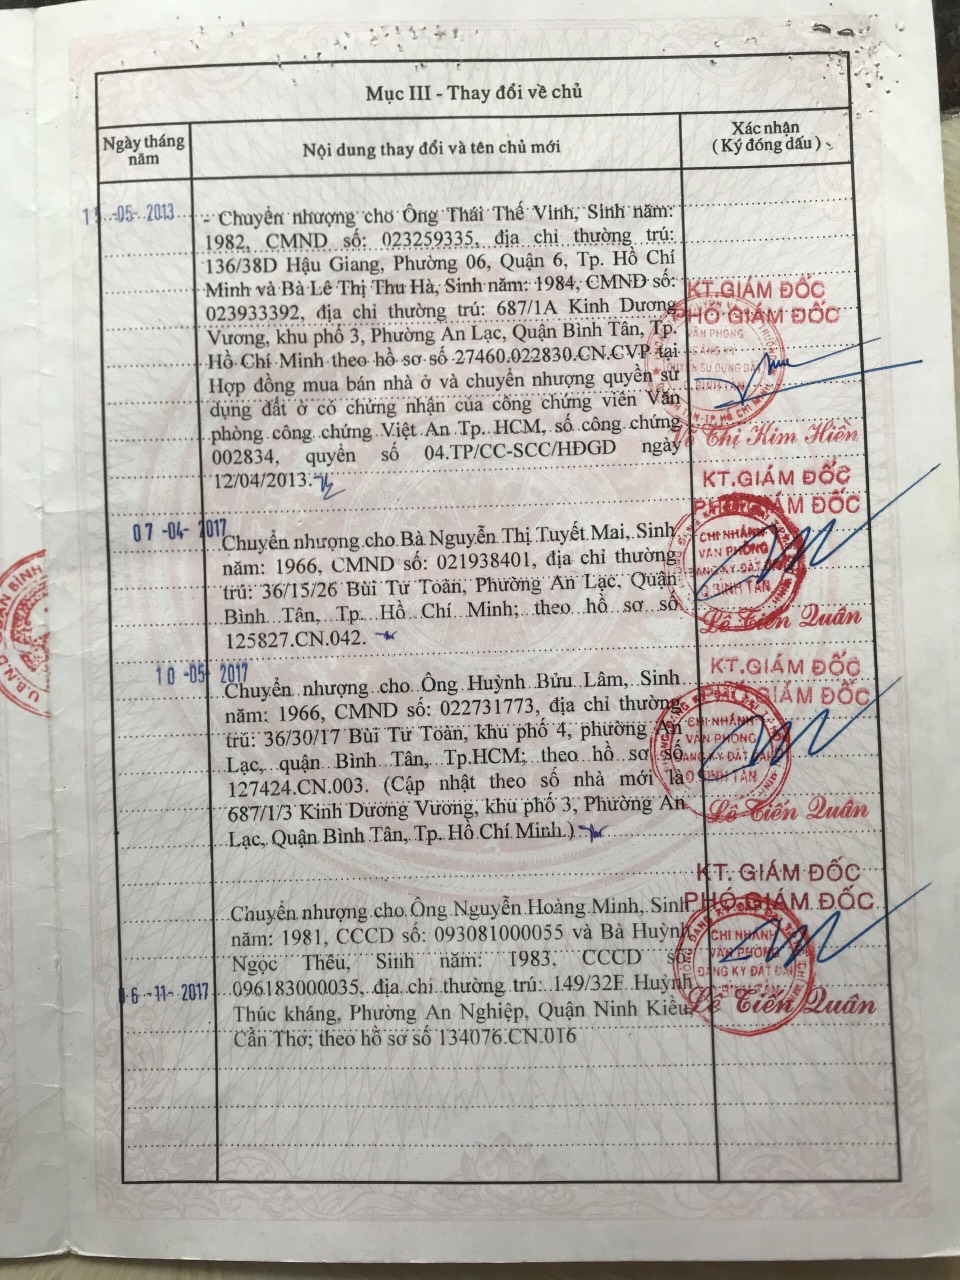 Mục III - Thay đổi về chủ
Ngày tháng năm
Nội dung thay đổi và tên chủ mới
Xác nhận
( Ký đóng dấu )
-05- 2013
- Chuyển nhượng cho Ông Thái Thế Vinh, Sinh năm:
1982, CMND số: 023259335, địa chỉ thường trú:
136/38D Hậu Giang, Phường 06, Quận 6, Tp. Hồ Chí
Minh và Bà Lê Thị Thu Hà, Sinh năm: 1984, CMND số:
023933392, địa chỉ thường trú: 687/1A Kinh Dương
Vương, khu phố 3, Phường An Lạc, Quận Bình Tân, Tp.
Hồ Chí Minh theo hồ sơ số 27460.022830.CN.CVP tại
Hợp đồng mua bán nhà ở và chuyển nhượng quyền sử
dụng đất ở có chứng nhận của công chứng viên Văn
phòng công chứng Việt An Tp. HCM, số công chứng
002834, quyển số 04.TP/CC-SCC/HĐGD ngày
12/04/2013.
KT.GIÁM ĐỐC
PHÓ GIÁM ĐỐC
VĂN PHÒNG
ĐĂNG KÝ
QUYỀN SỬ DỤNG ĐẤT
BÌNH TÂN
Võ Thị Kim Hiền
07 -04- 2017
Chuyển nhượng cho Bà Nguyễn Thị Tuyết Mai, Sinh
năm: 1966, CMND số: 021938401, địa chỉ thường
trú: 36/15/26 Bùi Tư Toàn, Phường An Lạc, Quận
Bình Tân, Tp. Hồ Chí Minh; theo hồ sơ số
125827.CN.042.
KT.GIÁM ĐỐC
PHÓ GIÁM ĐỐC
CHI NHÁNH
VĂN PHÒNG
ĐĂNG KÝ ĐẤT ĐAI
Q BÌNH TÂN
Lê Tiến Quân
10 -05- 2017
Chuyển nhượng cho Ông Huỳnh Bửu Lâm, Sinh
năm: 1966, CMND số: 022731773, địa chỉ thường
trú: 36/30/17 Bùi Tư Toàn, khu phố 4, phường An
Lạc, quận Bình Tân, Tp.HCM; theo hồ sơ số
127424.CN.003. (Cập nhật theo số nhà mới là
687/1/3 Kinh Dương Vương, khu phố 3, Phường An
Lạc, Quận Bình Tân, Tp. Hồ Chí Minh.)
KT.GIÁM ĐỐC
PHÓ GIÁM ĐỐC
CHI NHÁNH
VĂN PHÒNG
ĐĂNG KÝ ĐẤT ĐAI
Q BÌNH TÂN
Lê Tiến Quân
06 -11- 2017
Chuyển nhượng cho Ông Nguyễn Hoàng Minh, Sinh
năm: 1981, CCCD số: 093081000055 và Bà Huỳnh
Ngọc Thêu, Sinh năm: 1983, CCCD số
096183000035, địa chỉ thường trú: 149/32F Huỳnh
Thúc kháng, Phường An Nghiệp, Quận Ninh Kiều,
Cần Thơ; theo hồ sơ số 134076.CN.016
KT. GIÁM ĐỐC
PHÓ GIÁM ĐỐC
CHI NHÁNH
VĂN PHÒNG
ĐĂNG KÝ ĐẤT ĐAI
Q BÌNH TÂN
Lê Tiến Quân